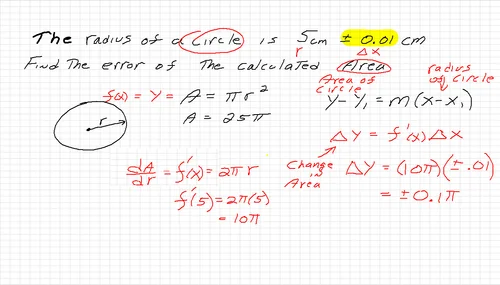 The radius of a circle is 5cm ± 0.01 cm
r Δx
Find the error of the calculated Area
Area of Circle
radius of Circle
f(x) = y = A = πr²
A = 25π
y - y₁ = m(x - x₁)
r
Δy = f'(x) Δx
dA/dr = f'(x) = 2πr
f'(5) = 2π(5)
= 10π
Change in Area
Δy = (10π)(±.01)
= ±0.1π